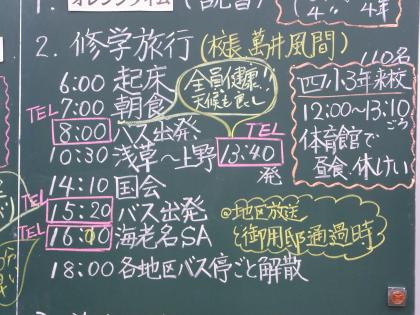 2. 修学旅行 (校長 萬井 風間)
6:00 起床
TEL 7:00 朝食
全員健康!!
天候も良し
8:00 バス出発
10:30 浅草〜上野 TEL 13:40発
TEL 14:10 国会
15:20 バス出発
TEL 16:00 海老名SA
◎地区放送
御用邸通過時
18:00 各地区バス停ごと解散
110名
四小3年来校
12:00〜13:10ごろ
体育館で
昼食・休けい